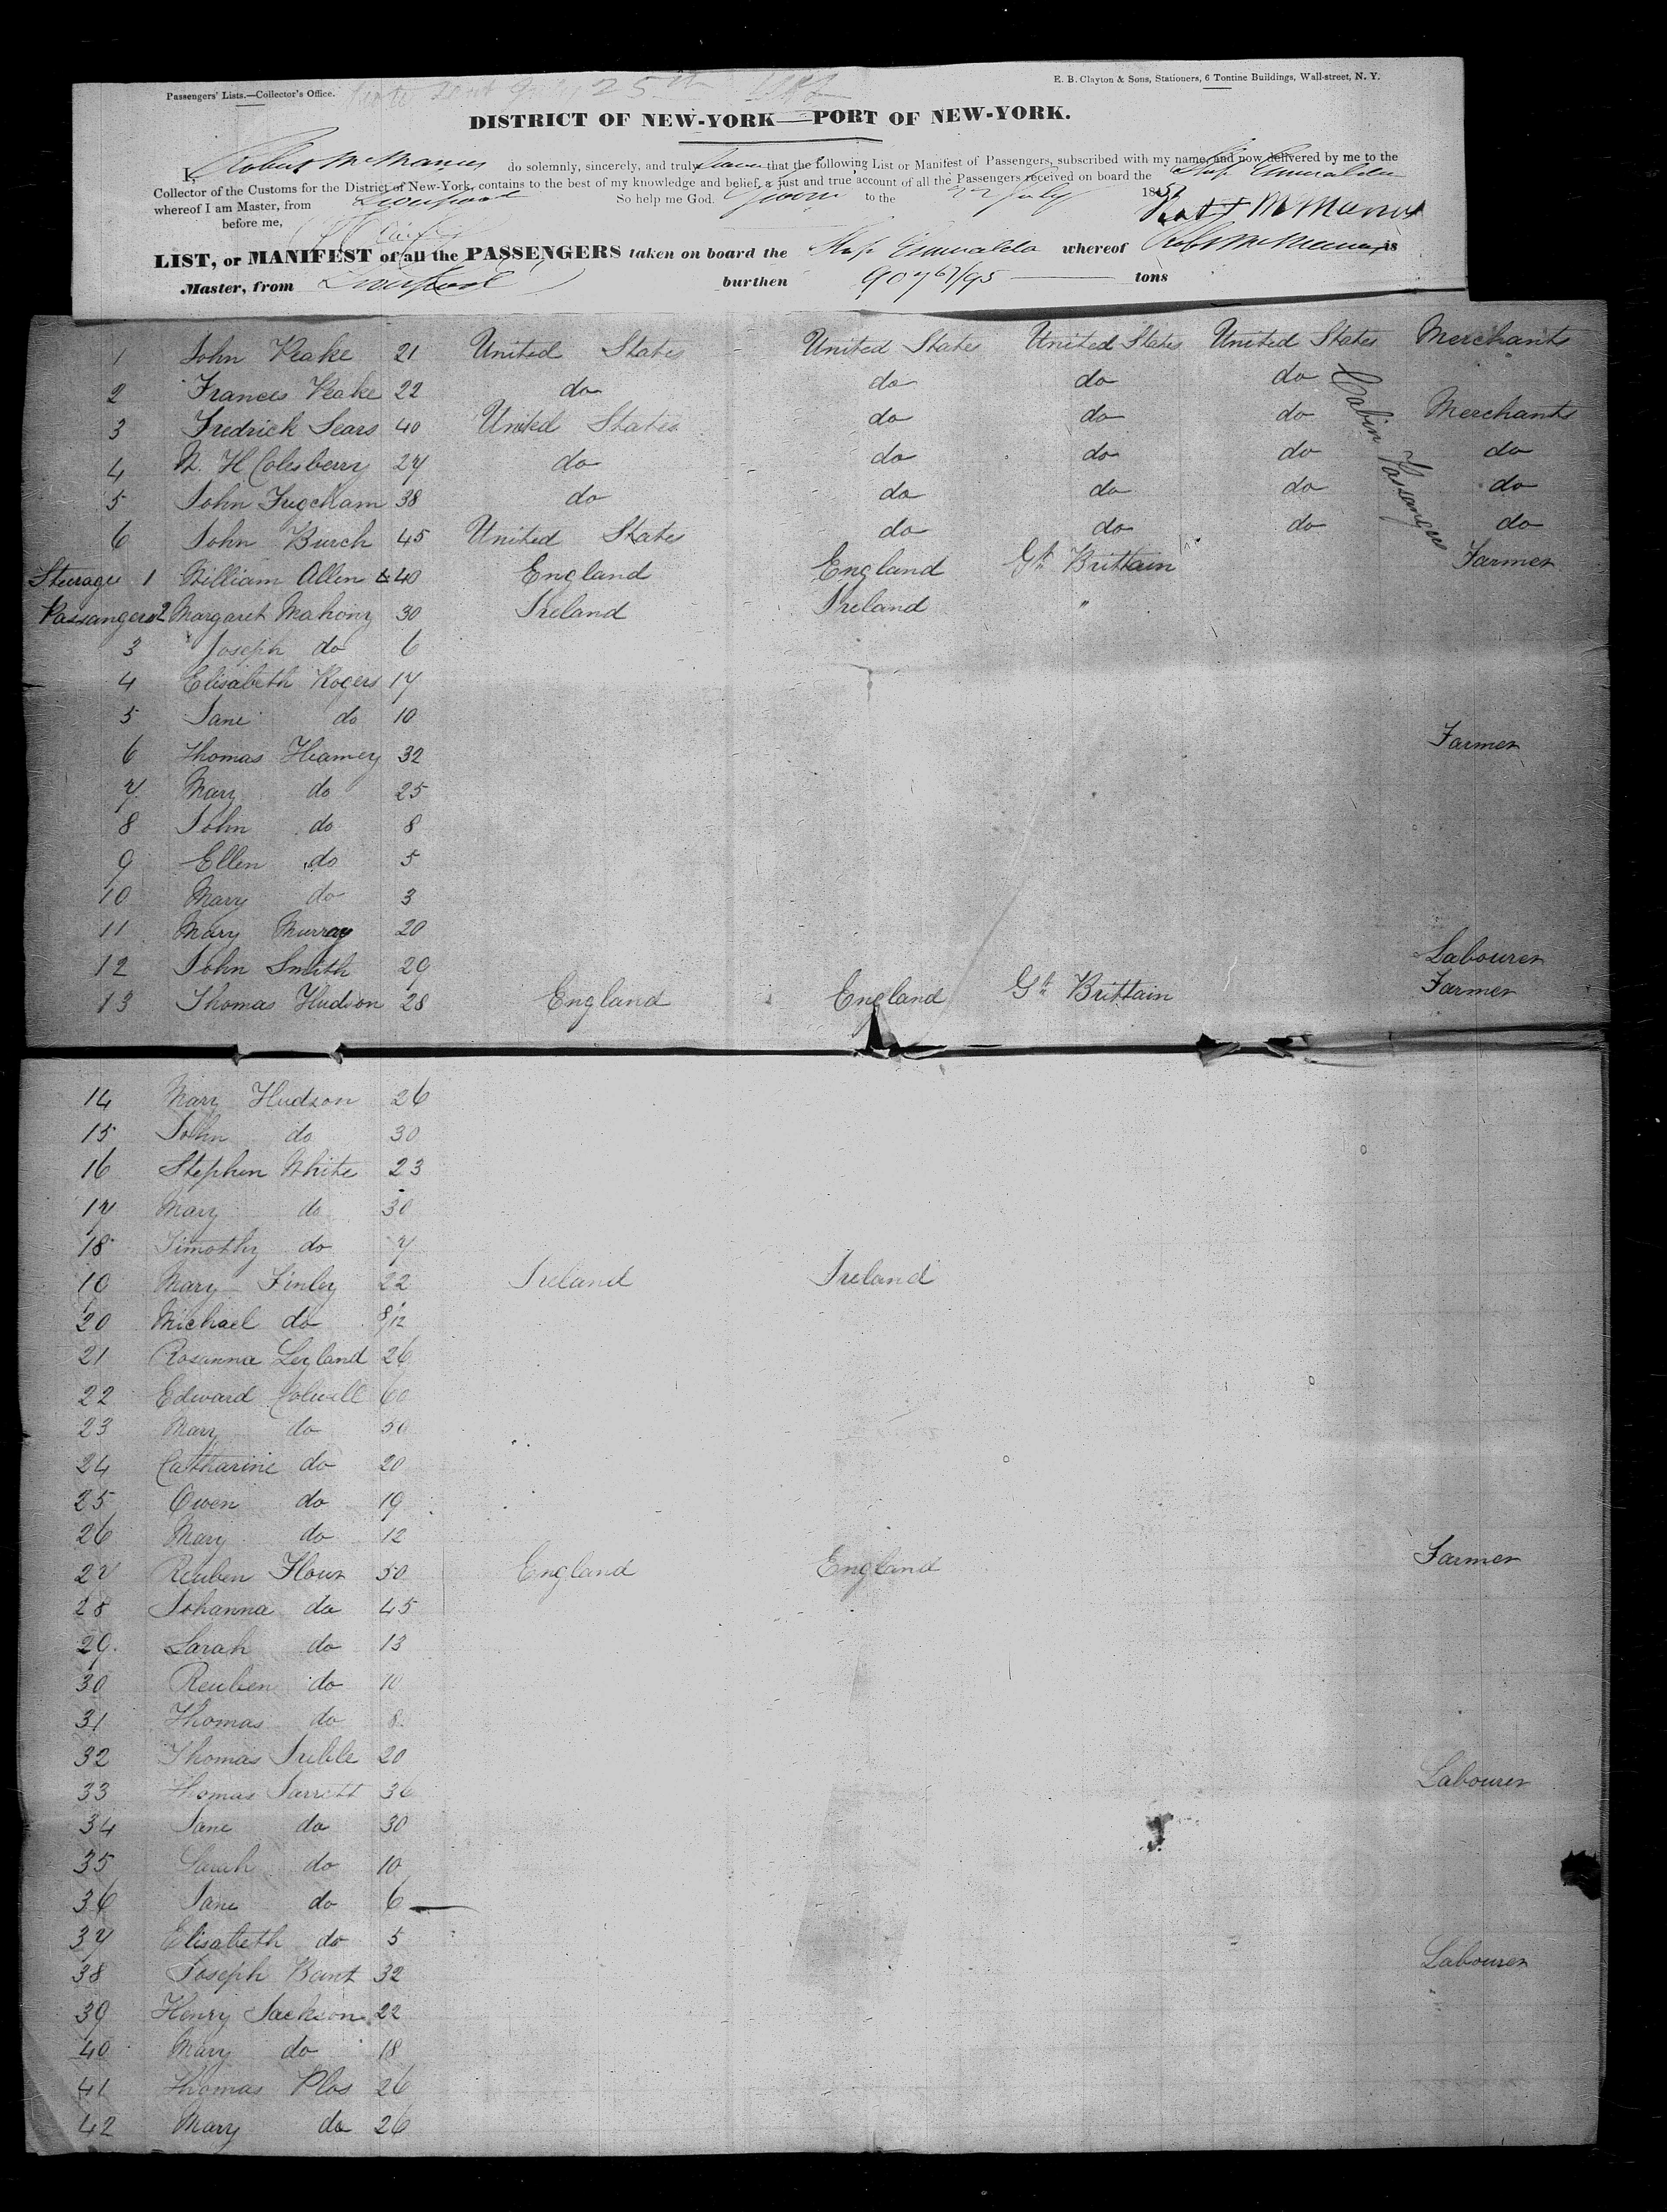 Passengers' Lists.—Collector's Office.
E. B. Clayton & Sons, Stationers, 6 Tontine Buildings, Wall-street, N. Y.
DISTRICT OF NEW-YORK—PORT OF NEW-YORK.
I, Robert McManus do solemnly, sincerely, and truly swear that the following List or Manifest of Passengers, subscribed with my name, and now delivered by me to the
Collector of the Customs for the District of New-York, contains to the best of my knowledge and belief, a just and true account of all the Passengers received on board the Ship Esmeralda
whereof I am Master, from Liverpool So help me God. Sworn to the 22 July 1851
before me, Robt McManus
LIST, or MANIFEST of all the PASSENGERS taken on board the Ship Esmeralda whereof Robt McManus is
Master, from Liverpool burthen 907 67/95 tons
1 John Peake 21 United States United States United States United States Merchants
2 Frances Peake 22 do do do do
3 Fredrick Sears 40 United States do do do Merchants
4 H Colesberry 27 do do do do do
5 John 38 do do do do do
6 John Burch 45 United States do do do do
Cabin Passangers
Steerage 1 William Allen 40 England England Gt Brittain Farmer
Passangers 2 Margaret Mahony 30 Ireland Ireland "
3 Joseph do 6
4 Elisabeth Rogers 17
5 Jane do 10
6 Thomas Heamey 32 Farmer
7 Mary do 25
8 John do 8
9 Ellen do 5
10 Mary do 3
11 Mary Murray 20
12 John Smith 29 Labourer
13 Thomas Hudson 28 England England Gt Brittain Farmer
14 Mary Hudson 26
15 John do 30
16 Stephen White 23
17 Mary do 30
18 Timothy do 7
19 Mary Finley 22 Ireland Ireland
20 Michael do 8/12
21 Rosanna Leyland 26
22 Edward Colwell 60
23 Mary do 50
24 Catharine do 20
25 Owen do 19
26 Mary do 12
27 Reuben Flour 50 England England Farmer
28 Johanna do 45
29 Sarah do 13
30 Reuben do 10
31 Thomas do 8
32 Thomas 20
33 Thomas Jarrett 36 Labourer
34 Jane do 30
35 Sarah do 10
36 Jane do 6
37 Elisabeth do 5
38 Joseph Bant 32 Labourer
39 Henry Jackson 22
40 Mary do 18
41 Thomas Plos 26
42 Mary do 26